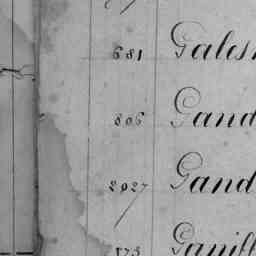 681 Gales
806 Gand
2927 Gand
173 Ganill